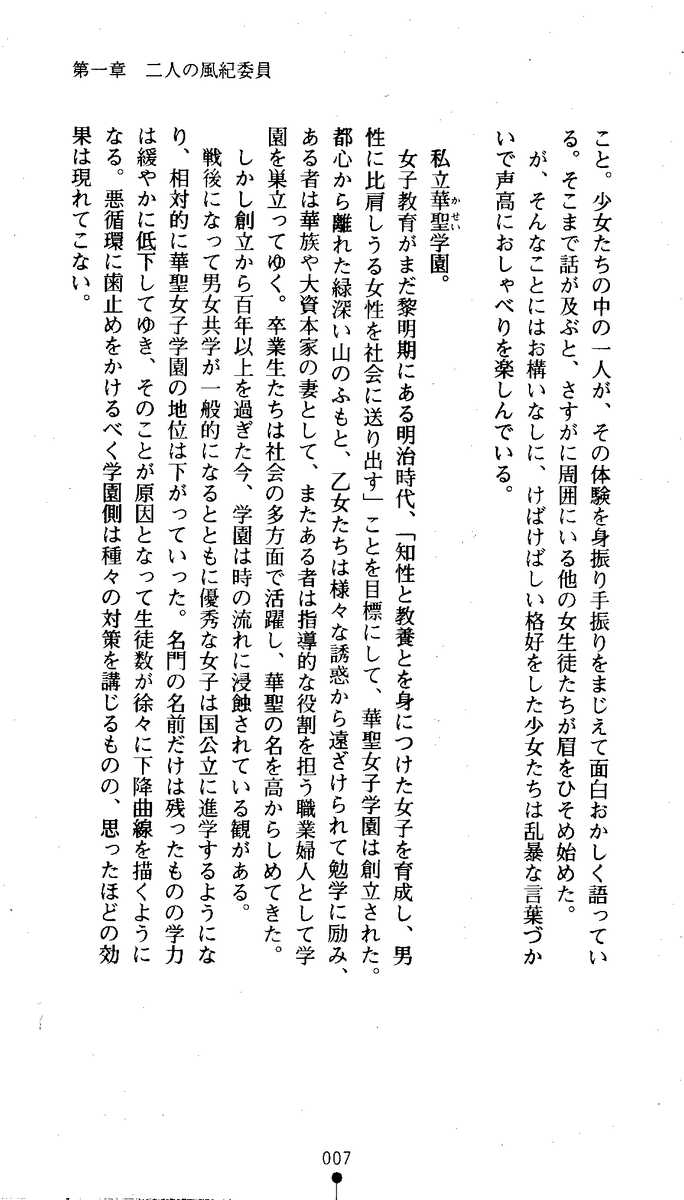 第一章　二人の風紀委員
こと。少女たちの中の一人が、その体験を身振り手振りをまじえて面白おかしく語ってい
る。そこまで話が及ぶと、さすがに周囲にいる他の女生徒たちが眉をひそめ始めた。
が、そんなことにはお構いなしに、けばけばしい格好をした少女たちは乱暴な言葉づか
いで声高におしゃべりを楽しんでいる。
私立華聖学園。
かせい
女子教育がまだ黎明期にある明治時代、「知性と教養とを身につけた女子を育成し、男
性に比肩しうる女性を社会に送り出す」ことを目標にして、華聖女子学園は創立された。
都心から離れた緑深い山のふもと、乙女たちは様々な誘惑から遠ざけられて勉学に励み、
ある者は華族や大資本家の妻として、またある者は指導的な役割を担う職業婦人として学
園を巣立ってゆく。卒業生たちは社会の多方面で活躍し、華聖の名を高からしめてきた。
しかし創立から百年以上を過ぎた今、学園は時の流れに浸蝕されている観がある。
戦後になって男女共学が一般的になるとともに優秀な女子は国公立に進学するようにな
り、相対的に華聖女子学園の地位は下がっていった。名門の名前だけは残ったものの学力
は緩やかに低下してゆき、そのことが原因となって生徒数が徐々に下降曲線を描くように
なる。悪循環に歯止めをかけるべく学園側は種々の対策を講じるものの、思ったほどの効
果は現れてこない。
007